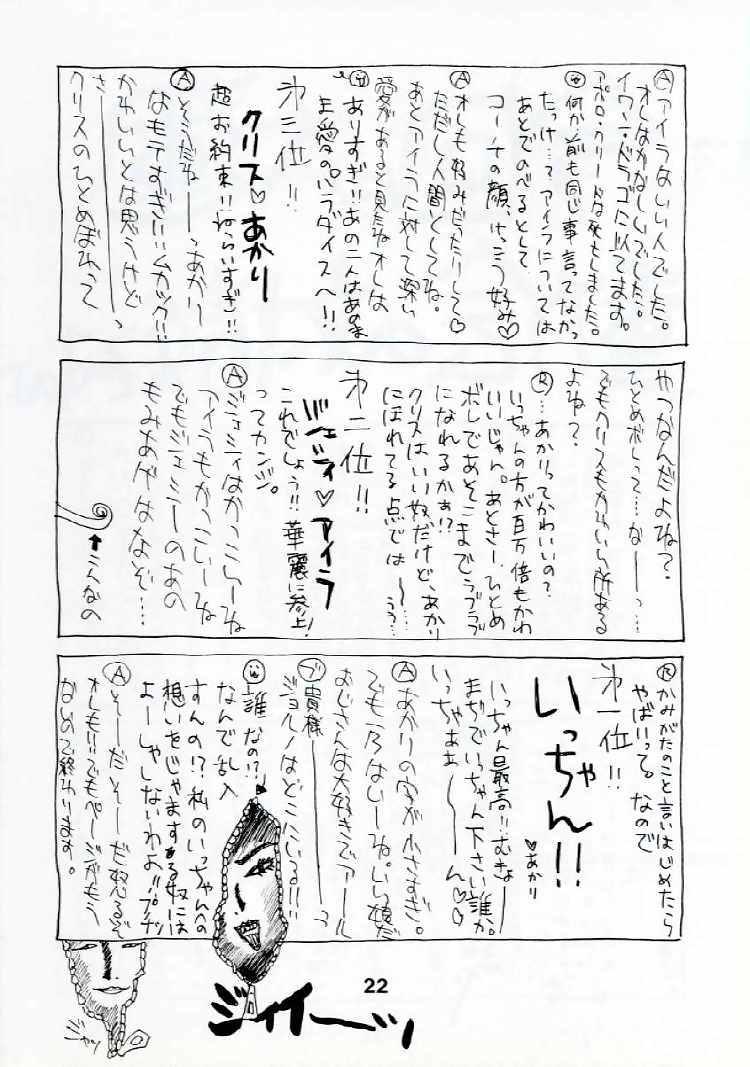 Ⓐアイラはいい人でした。
オレはかなしいでした。
イワン・ドラゴに似てます。
アポロ・クリードは死もしました。
何か前も同じ事言ってなかっ
たっけ…？アイラについては
あとでのべるとして
コーチの顔、けっこう好み♡
Ⓐオレも好みだったりして♡
ただし人間としてね。
あとアイラに対して深い
愛があると見たねオレは
ありすぎ!!あの二人はあのまま
愛のパラダイスへ!!
第三位!!
クリス♡あかり
超お約束!!ねらいすぎ!!
Ⓐそうだねーーっあかり
なもテすぎ!!ムカック!!
かわいいとは思うけど
さーーーーーーっ
クリスのひとめぼれって
やつなんだよね？
ひとめボレって…なーっ…
でもクリスもかわいい所ある
よね？
Ⓡ…あかりってかわいいの？
いっちゃんの方が百万倍もかわ
いいじゃん。あとさー、ひとめ
ボレであそこまでラブラブ
になれるかぁ!?
クリスはいい奴だけど、あかり
にほれてる点では～…うう…
第二位!!
ジェミティ♡アイラ
これでしょう!!華麗に参上!
ってカンジ。
Ⓐジェミティはかっこいーね
アイラもかっこいーね
でもジェミニーのあの
もみあげはなぞ…
↑こんなの
Ⓡかみがたのこと言いはじめたら
やばいって。なので
第一位!!
いっちゃん!!
♡あかり
いっちゃん最高!!むきょー
まぢでいっちゃん下さい誰か。
いっちゃぁぁーーーん♡♡
Ⓐあかりの字が小さすぎ。
でも一乃はいーね。いい娘だ
おじさんは大好きでアール
ブ貴様ーーーーーっ
ジョルノはどこにいる!!!
誰なの!?
なんで乱入
すんの!?私のいっちゃんへの
想いをじゃまする奴には
よーしゃしないわよ!!プンプン
Ⓐそーだそーだ怒るぞ
オレも!!でもページがもう
ないので終わります。
22
ジャイーッ
ジャッ